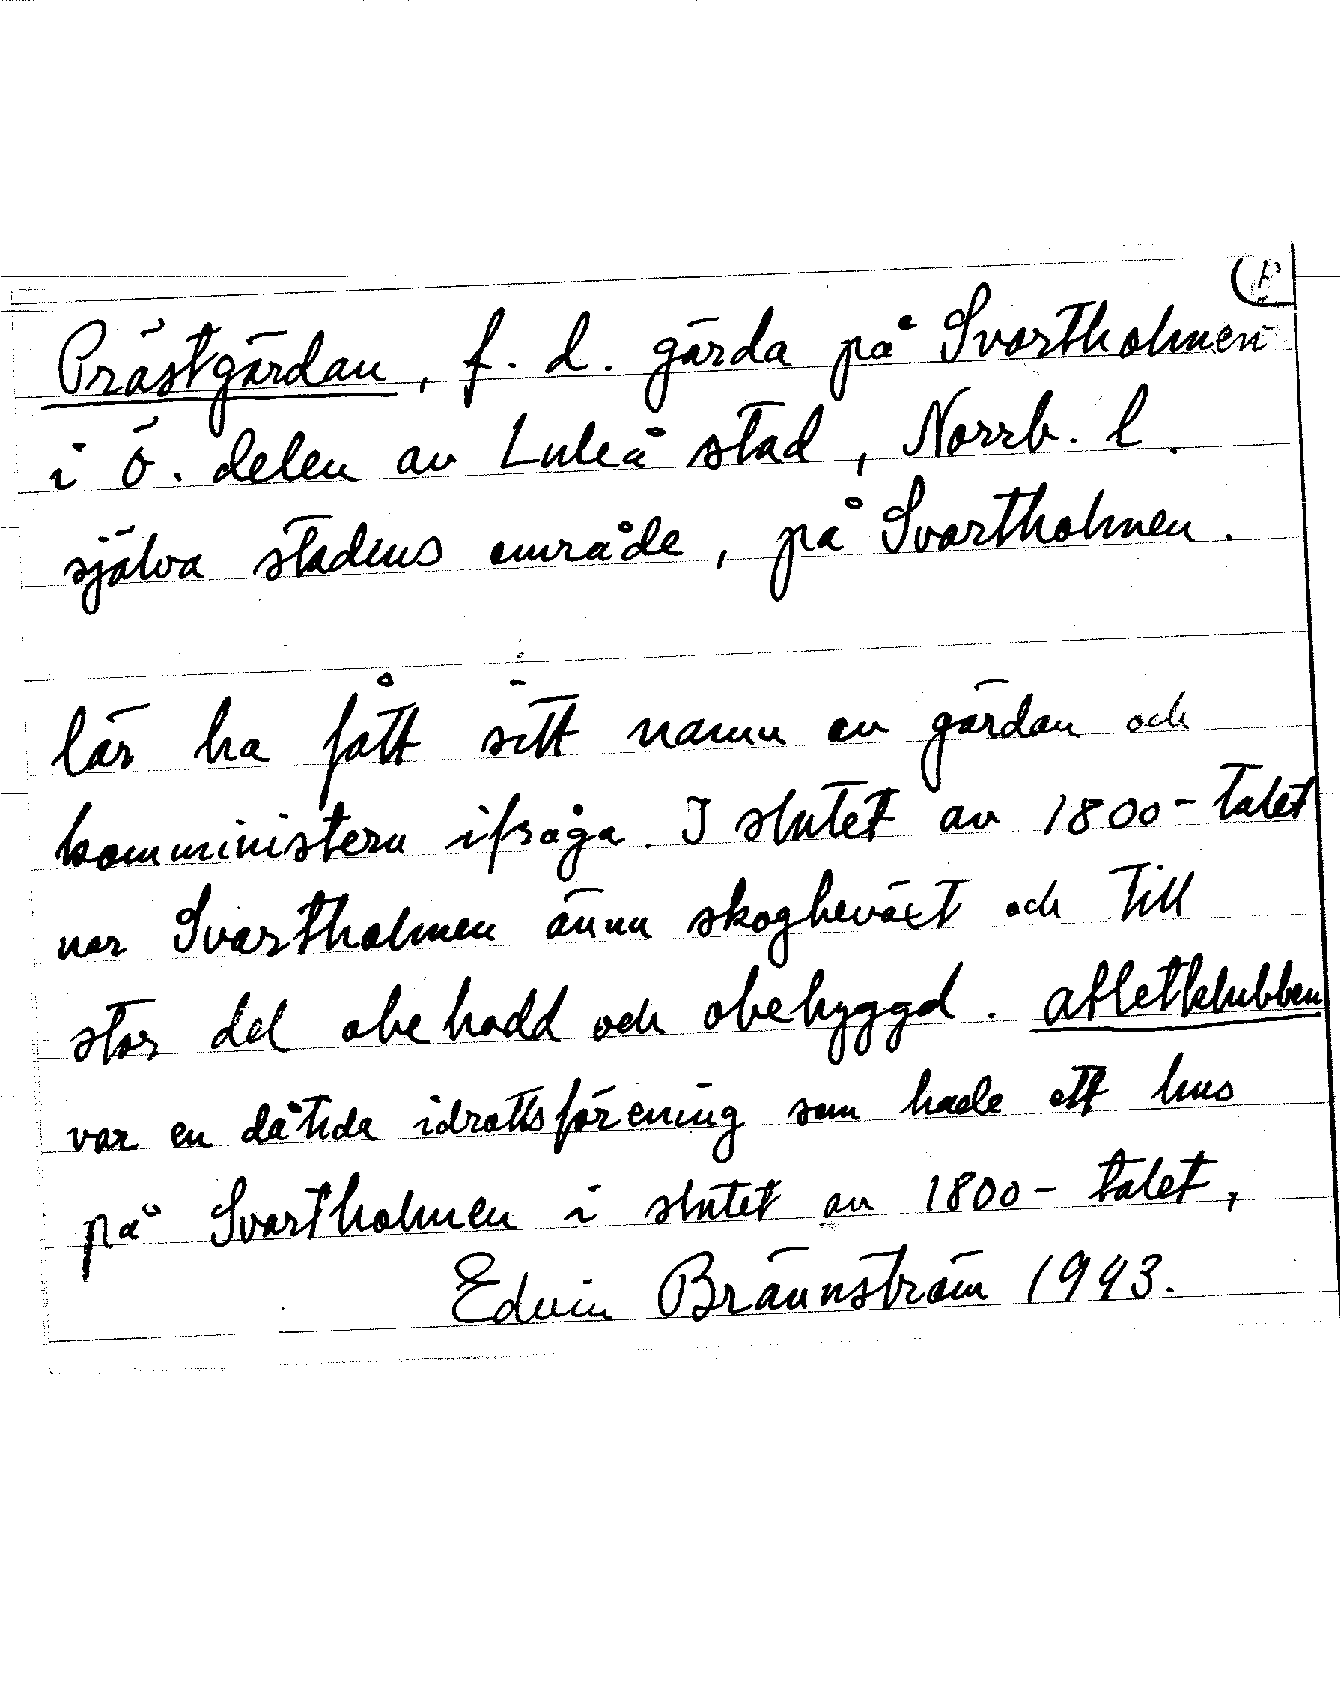 Prästgärdan, f. d. gärda på Svartholmen
i ö. delen av Luleå stad, Norrb. l.
själva stadens område, på Svartholmen.
lär ha fått sitt namn av gärdan och
komministern ifråga. I slutet av 1800-talet
var Svartholmen ännu skogbeväxt och till
stor del obebodd och obebyggd. Atletklubben
var en dåtida idrottsförening som hade ett hus
på Svartholmen i slutet av 1800-talet,
Edvin Brännström 1943.